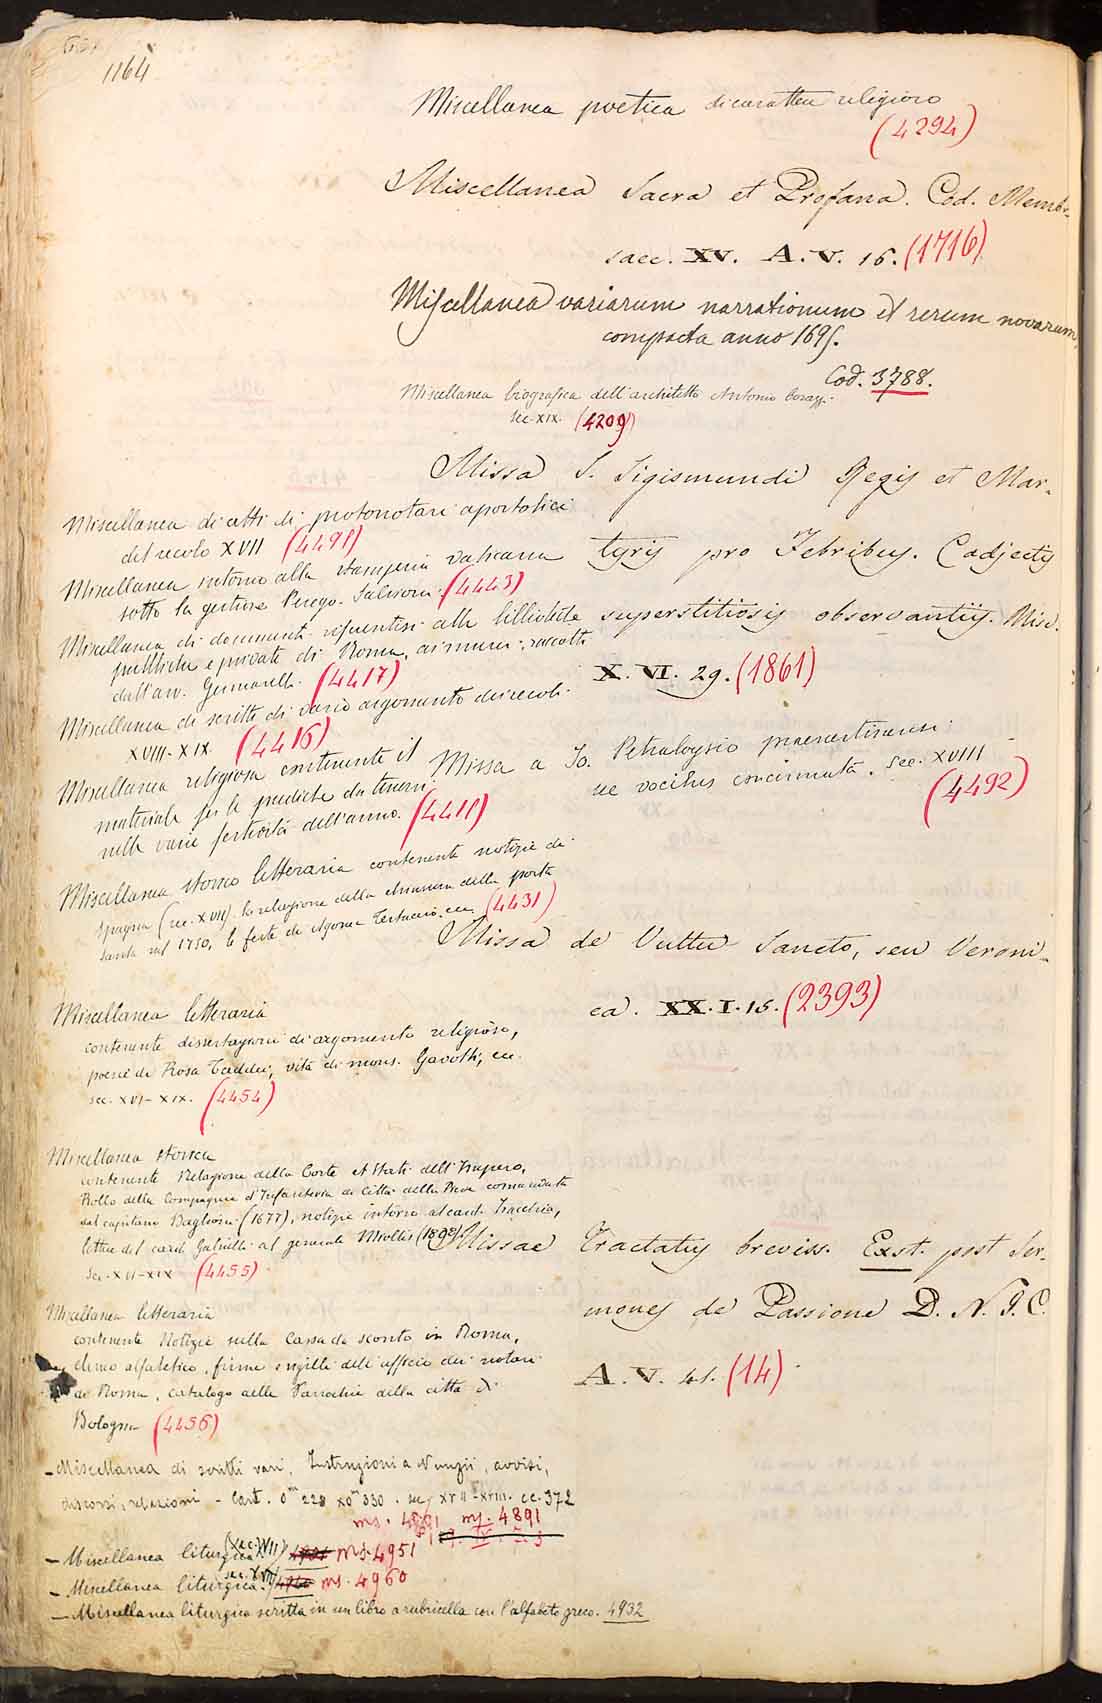 1164
Miscellanea poetica di carattere religioso
(4294)
Miscellanea Sacra et Profana. Cod. Membr.
saec. XV. A. V. 16. (1716)
Miscellanea variarum narrationum et rerum novarum,
compacta anno 1695.
Cod. 3788.
Miscellanea biografica dell'architetto Antonio Corazzi.
sec. XIX. (4209)
Missa S. Sigismundi Regis et Mar-
tyris pro Febribus. Cadjectis
superstitiosis observantiis. Misc.
X. VI. 29. (1861)
Missa a Jo. Petraloysio praenestinensi
vocibus concinnata. Sec. XVIII
(4492)
Missa de Vultu Sancto, seu Veroni-
ca. XX. I. 15. (2393)
Missae Tractatus breviss. Exst. post Ser-
mones de Passione D. N. J. C.
A. V. 41. (14)
Miscellanea di atti di protonotari apostolici
del secolo XVII (4491)
Miscellanea intorno alla stamperia vaticana
sotto la gestione Perego-Salvioni. (4443)
Miscellanea di documenti riferentisi alle biblioteche
pubbliche e private di Roma, ai musei, raccolti
dall'avv. Gennarelli. (4417)
Miscellanea di scritti di vario argomento dei secoli
XVIII-XIX (4416)
Miscellanea religiosa contenente il
materiale per le prediche da tenersi
nelle varie festività dell'anno. (4418)
Miscellanea storico letteraria contenente notizie di
Spagna (sec. XVII), la relazione della chiusura della porta
santa nel 1750, le feste di Agone Testaccio, ecc. (4431)
Miscellanea letteraria
contenente dissertazioni di argomento religioso,
poesie di Rosa Taddei, vita di mons. Gavotti, ecc.
sec. XVI-XIX. (4454)
Miscellanea storica
contenente Relazione della Corte et Stati dell'Impero,
Rollo della Compagnia d'Infanteria di Città della Pieve comandata
dal capitano Baglioni (1677), notizie intorno al card.
lettere del card. Gabrielli al generale Miollis (1808).
Sec. XVI-XIX (4455)
Miscellanea letteraria
contenente Notizie sulla Cassa di sconto in Roma,
elenco alfabetico, firme e sigilli dell'ufficio dei notari
di Roma, catalogo delle Parrochie della città di
Bologna (4456)
- Miscellanea di scritti vari, Instruzioni a Nunzii, avvisi,
discorsi, relazioni - Cart. 0m 228 x 0m 330. sec. XVII-XVIII. cc. 372
ms. 4891 ms. 4891
- Miscellanea liturgica (sec. XVII) ms. 4951
- Miscellanea liturgica. (sec. XVII) ms. 4960
- Miscellanea liturgica scritta in un libro a rubricella con l'alfabeto greco. 4932